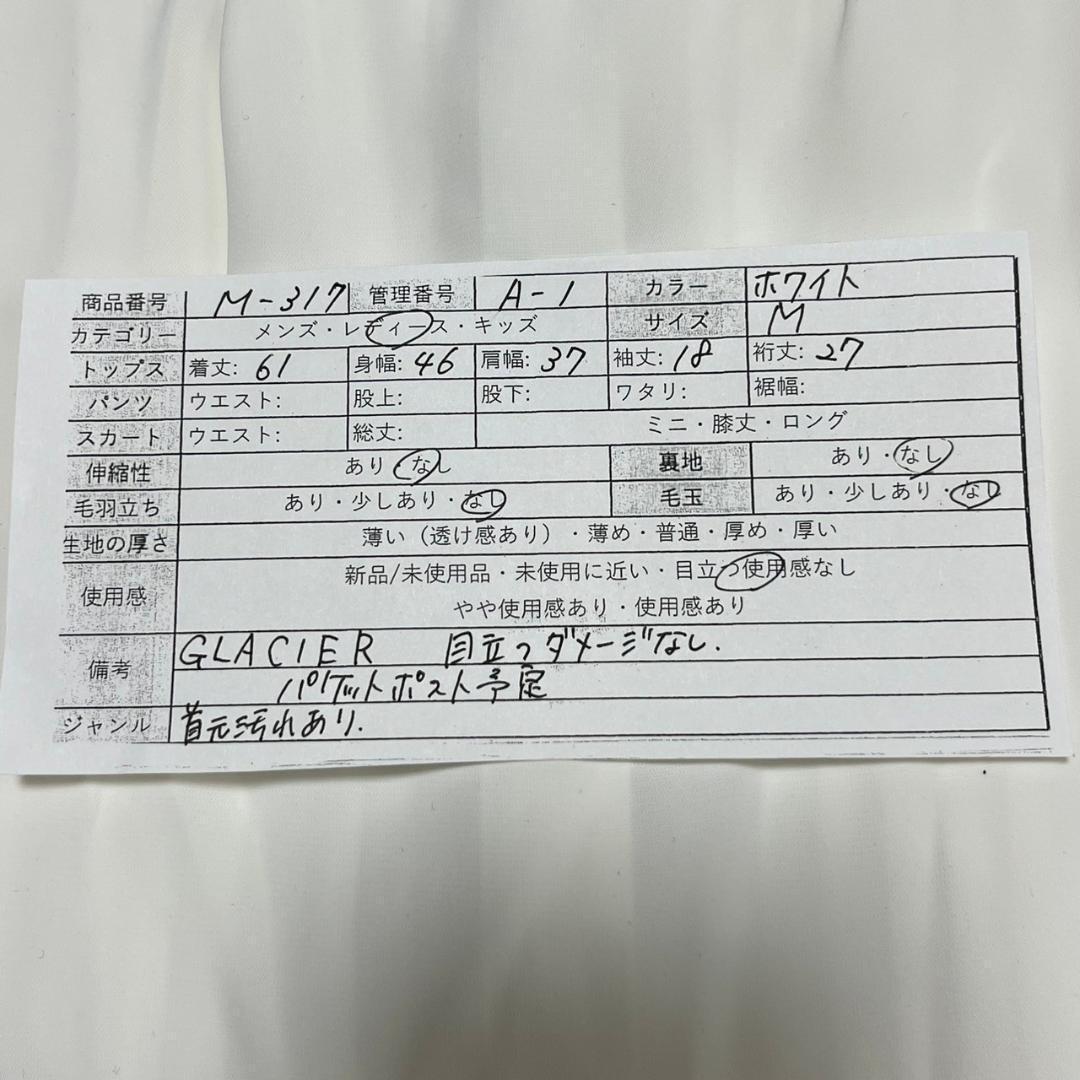 商品番号 M-317 管理番号 A-1 カラー ホワイト
カテゴリー メンズ・レディース・キッズ サイズ M
トップス 着丈: 61 身幅: 46 肩幅: 37 袖丈: 18 裄丈: 27
パンツ ウエスト: 股上: 股下: ワタリ: 裾幅:
スカート ウエスト: 総丈: ミニ・膝丈・ロング
伸縮性 あり・なし 裏地 あり・なし
毛羽立ち あり・少しあり・なし 毛玉 あり・少しあり・なし
生地の厚さ 薄い（透け感あり）・薄め・普通・厚め・厚い
使用感 新品/未使用品・未使用に近い・目立つ使用感なし
やや使用感あり・使用感あり
備考 GLACIER 目立つダメージなし.
パケットポスト予定
ジャンル 首元汚れあり.